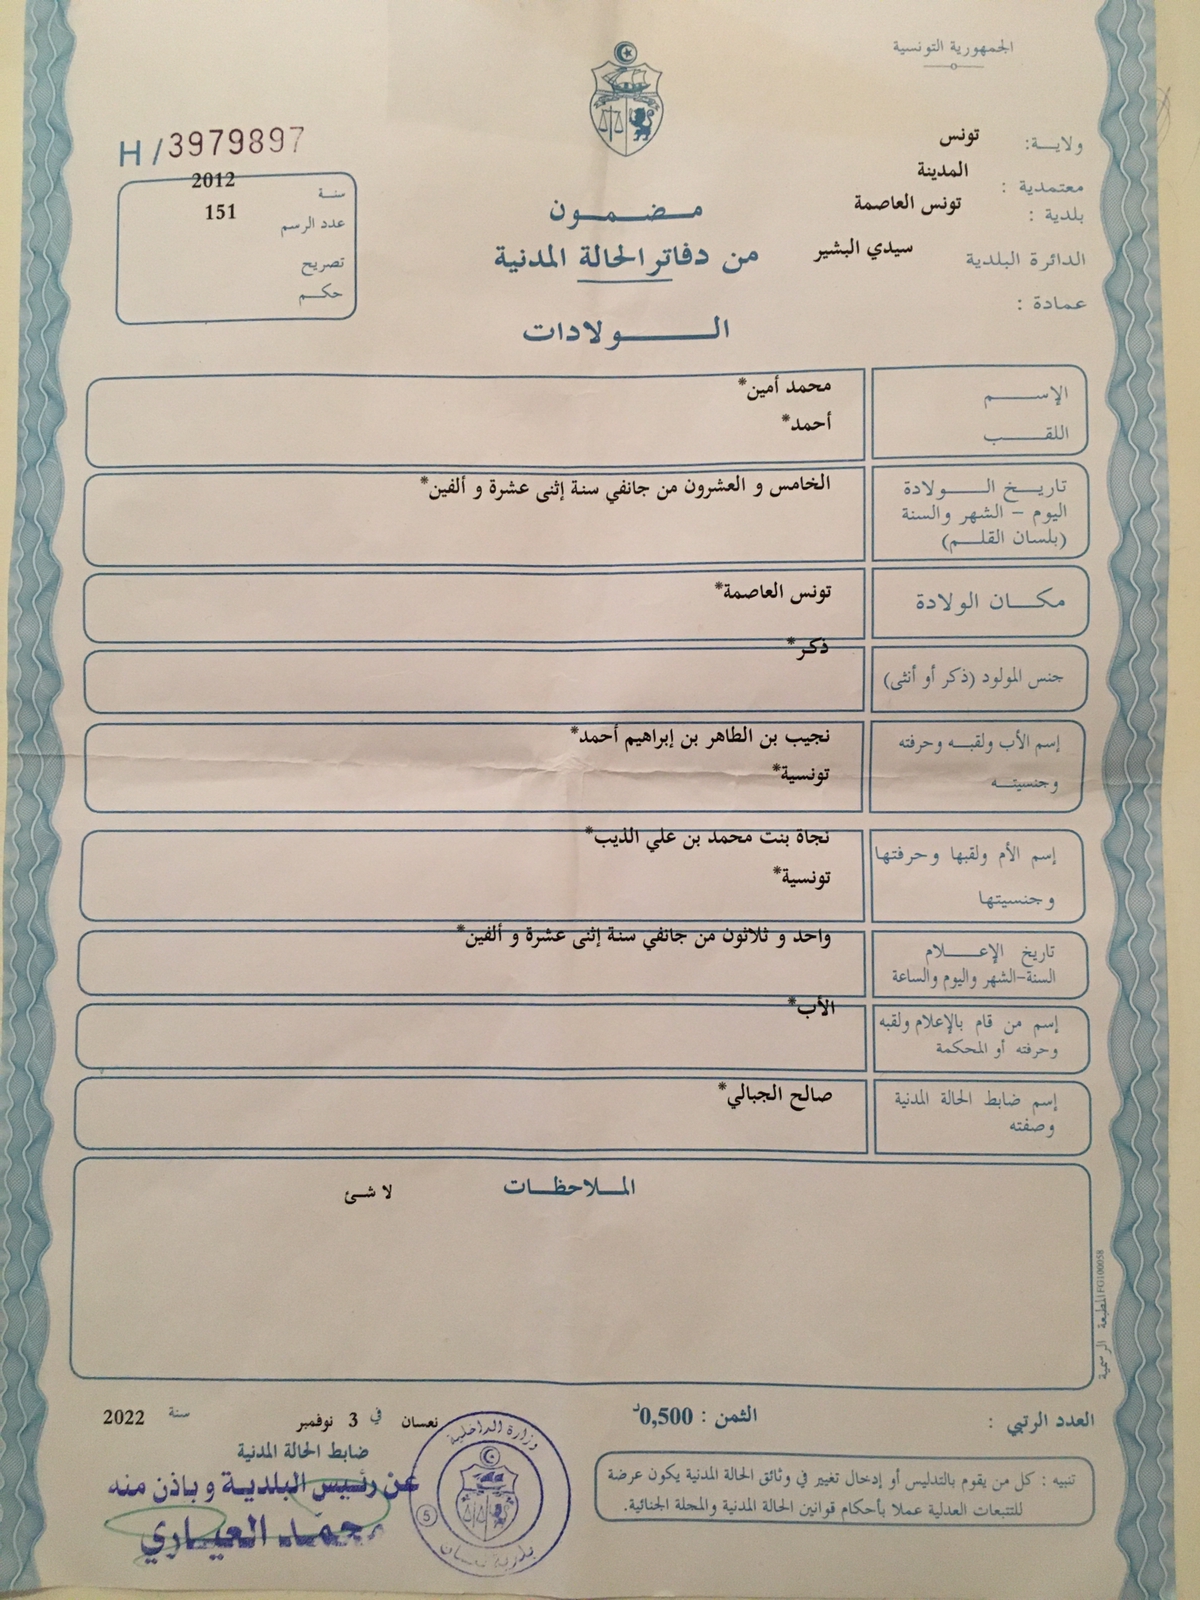 الجمهورية التونسية
ولايـة: تونس
معتمدية : المدينة
بلدية : تونس العاصمة
الدائرة البلدية سيدي البشير
عمادة :
H/3979897
سنة 2012
عدد الرسم 151
تصريح
حكم
مضمون
من دفاتر الحالة المدنية
الولادات
الإسم محمد أمين*
اللقب أحمد*
تاريخ الولادة الخامس و العشرون من جانفي سنة إثنى عشرة و ألفين*
اليوم - الشهر والسنة
(بلسان القلم)
مكان الولادة تونس العاصمة*
جنس المولود (ذكر أو أنثى) ذكر*
إسم الأب ولقبه وحرفته نجيب بن الطاهر بن إبراهيم أحمد*
وجنسيته تونسية*
إسم الأم ولقبها وحرفتها نجاة بنت محمد بن علي الذيب*
وجنسيتها تونسية*
تاريخ الإعلام واحد و ثلاثون من جانفي سنة إثنى عشرة و ألفين*
السنة-الشهر واليوم والساعة
إسم من قام بالإعلام ولقبه الأب*
وحرفته أو المحكمة
إسم ضابط الحالة المدنية صالح الجبالي*
وصفته
الملاحظات
لا شئ
المطبعة الرسمية FG100058
العدد الرتبي :
الثمن : 0,500د
نعسان في 3 نوفمبر سنة 2022
ضابط الحالة المدنية
عن رئيس البلدية وباذن منه
محمد العياري
وزارة الداخلية
5
بلدية نعسان
تنبيه : كل من يقوم بالتدليس أو إدخال تغيير في وثائق الحالة المدنية يكون عرضة
للتتبعات العدلية عملا بأحكام قوانين الحالة المدنية والمجلة الجنائية.